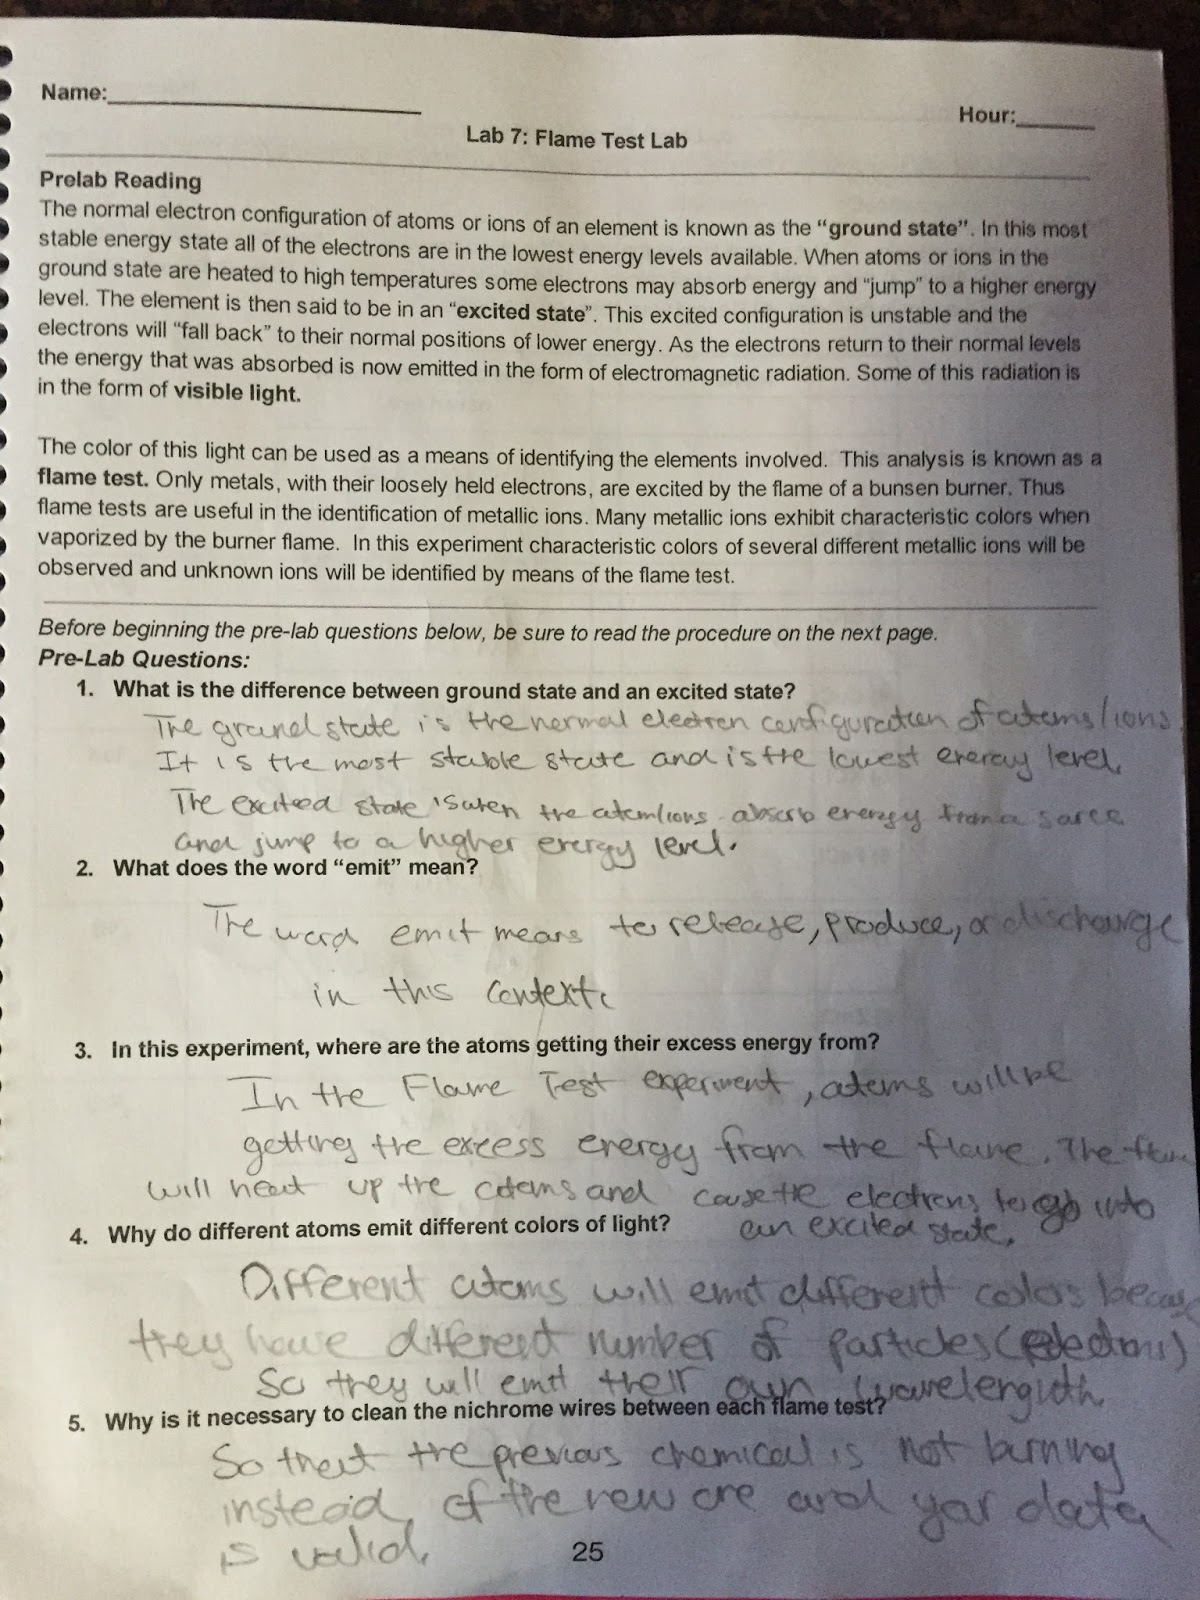 Name:
Hour:
Lab 7: Flame Test Lab
Prelab Reading
The normal electron configuration of atoms or ions of an element is known as the “ground state”. In this most
stable energy state all of the electrons are in the lowest energy levels available. When atoms or ions in the
ground state are heated to high temperatures some electrons may absorb energy and “jump” to a higher energy
level. The element is then said to be in an “excited state”. This excited configuration is unstable and the
electrons will “fall back” to their normal positions of lower energy. As the electrons return to their normal levels
the energy that was absorbed is now emitted in the form of electromagnetic radiation. Some of this radiation is
in the form of visible light.
The color of this light can be used as a means of identifying the elements involved. This analysis is known as a
flame test. Only metals, with their loosely held electrons, are excited by the flame of a bunsen burner. Thus
flame tests are useful in the identification of metallic ions. Many metallic ions exhibit characteristic colors when
vaporized by the burner flame. In this experiment characteristic colors of several different metallic ions will be
observed and unknown ions will be identified by means of the flame test.
Before beginning the pre-lab questions below, be sure to read the procedure on the next page.
Pre-Lab Questions:
1. What is the difference between ground state and an excited state?
The ground state is the normal electron configuration of atoms/ions.
It is the most stable state and is the lowest energy level.
The excited state is when the atom/ions absorb energy from a sorce
and jump to a higher energy level.
2. What does the word “emit” mean?
The word emit means to release, produce, or discharge
in this context.
3. In this experiment, where are the atoms getting their excess energy from?
In the Flame Test experiment, atoms will be
getting the excess energy from the flame. The flame
will heat up the atoms and cause the electrons to go into
an excited state.
4. Why do different atoms emit different colors of light?
Different atoms will emit different colors because
they have different number of particles (electrons)
So they will emit their own wavelength.
5. Why is it necessary to clean the nichrome wires between each flame test?
So that the previous chemical is not burning
instead of the new one and your data
is valid.
25